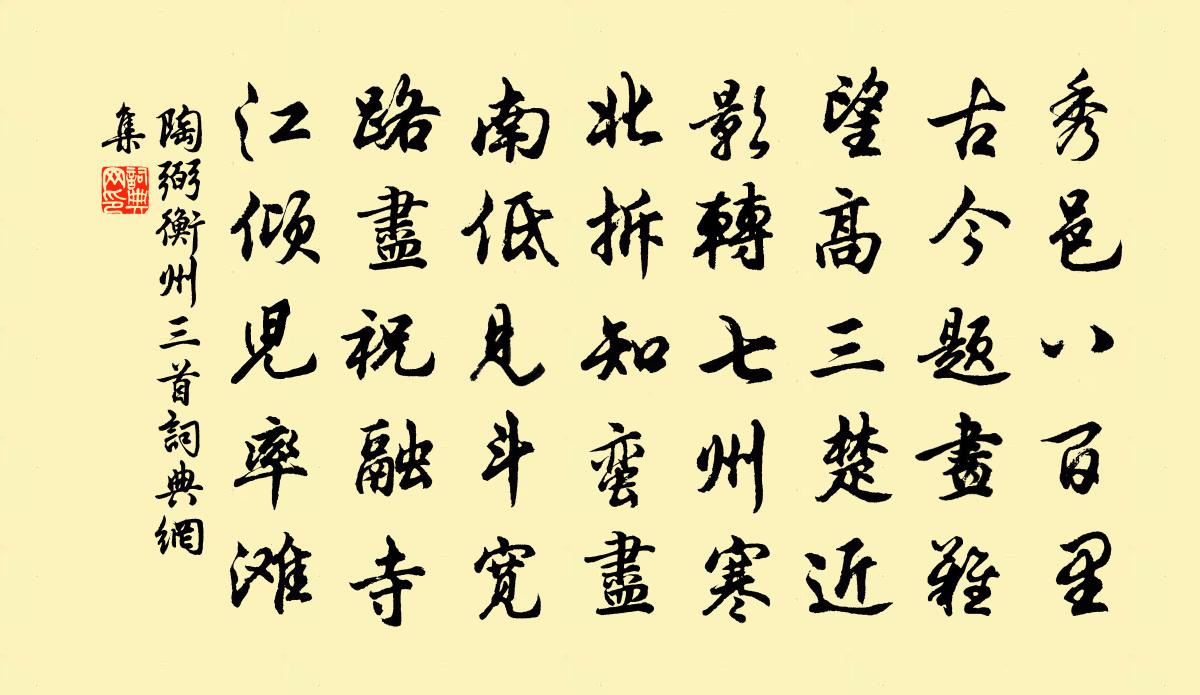 秀邑八百里
古今題畫難
望高三楚近
影轉七州寒
北拆知蛮盡
南低見斗寬
路盡祝融寺
江傾兒率滩
陶弼衡州三首詞典網
集
詞典网印